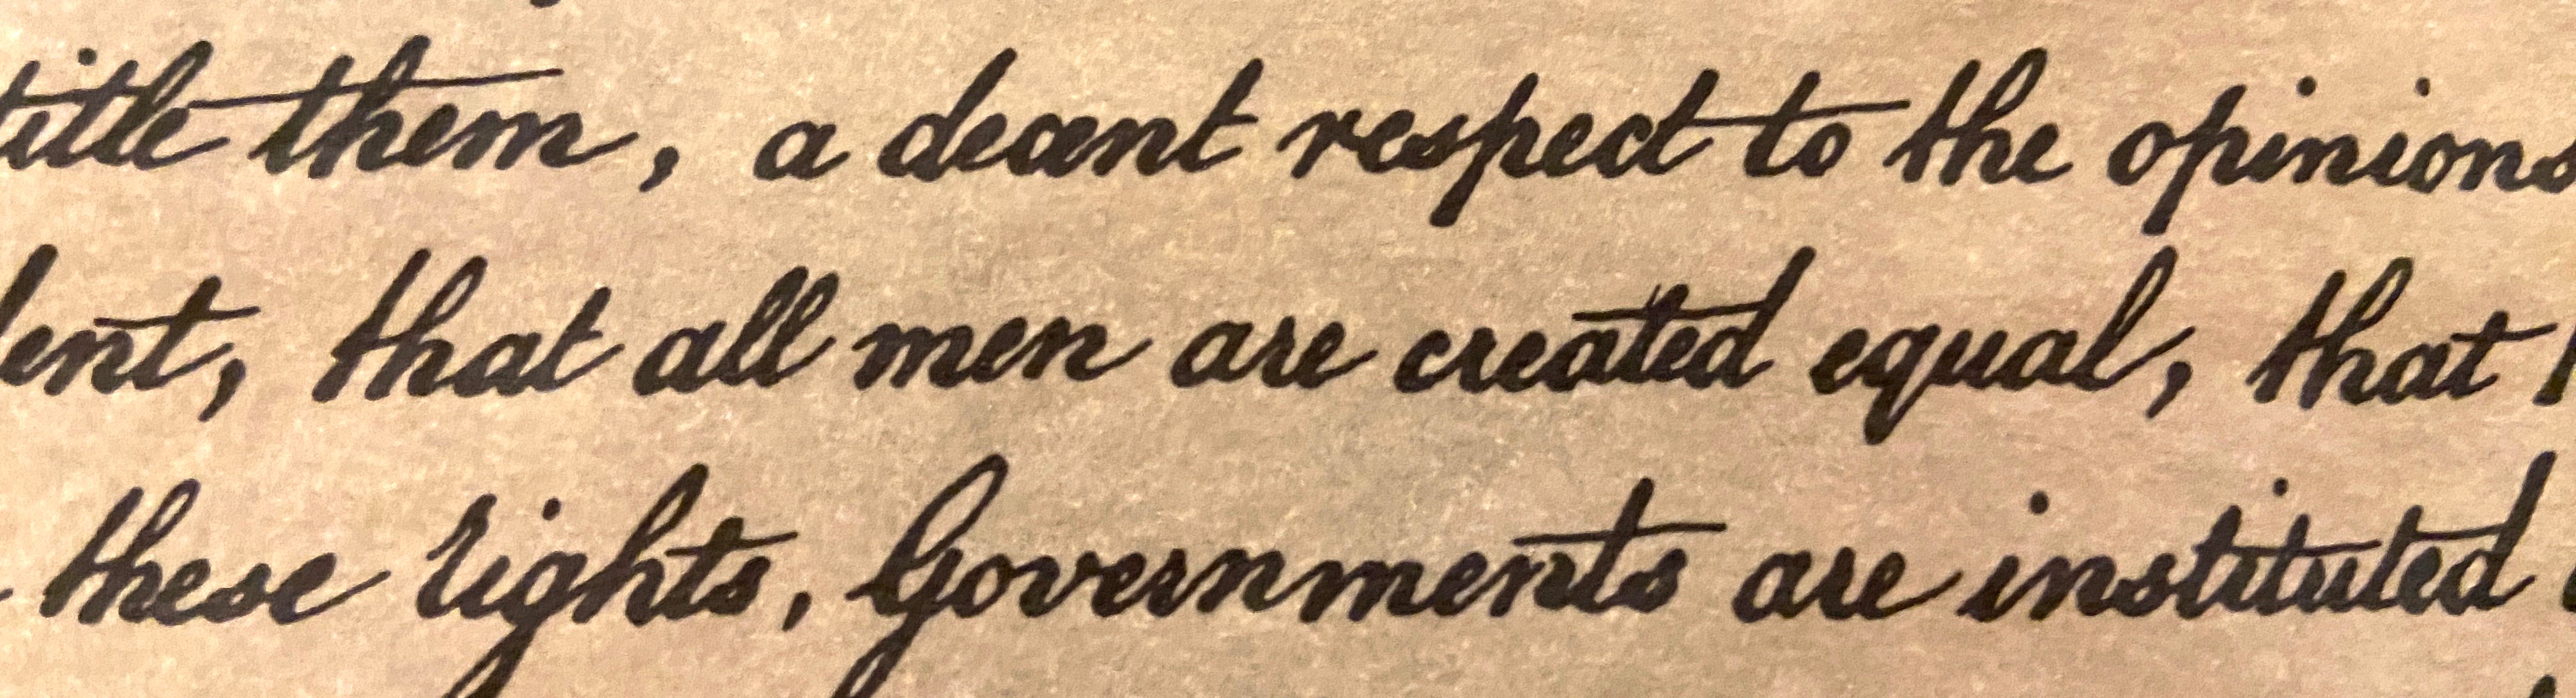 title them, a decent respect to the opinions
dent, that all men are created equal, that
these rights, Governments are instituted